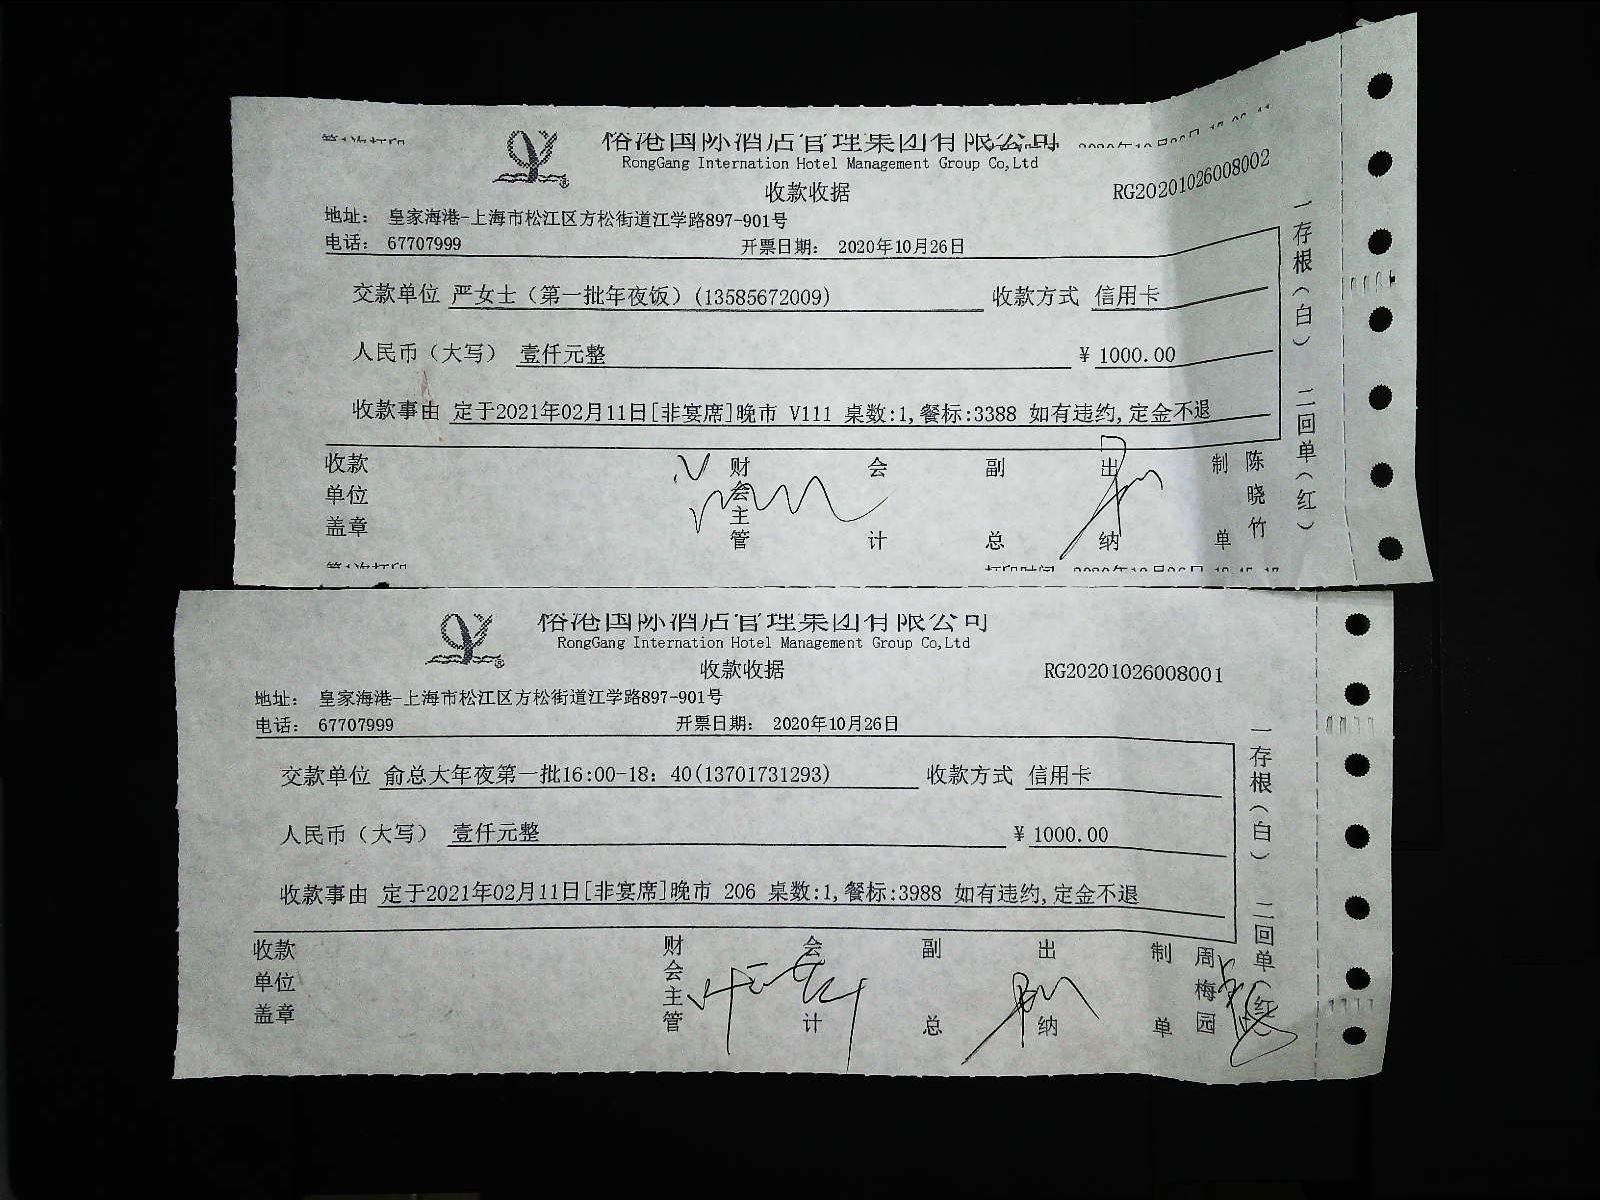 榕港国际酒店管理集团有限公司
RongGang Internation Hotel Management Group Co,Ltd
收款收据
RG20201026008002
地址： 皇家海港-上海市松江区方松街道江学路897-901号
电话： 67707999 开票日期： 2020年10月26日
交款单位 严女士（第一批年夜饭）(13585672009) 收款方式 信用卡
人民币（大写） 壹仟元整 ¥ 1000.00
收款事由 定于2021年02月11日[非宴席]晚市 V111 桌数:1,餐标:3388 如有违约,定金不退
收款单位盖章 财会主管 会计 副总 出纳 制单 陈晓竹
一存根（白） 二回单（红）
第1次打印 打印时间
榕港国际酒店管理集团有限公司
RongGang Internation Hotel Management Group Co,Ltd
收款收据
RG20201026008001
地址： 皇家海港-上海市松江区方松街道江学路897-901号
电话： 67707999 开票日期： 2020年10月26日
交款单位 俞总大年夜第一批16:00-18：40(13701731293) 收款方式 信用卡
人民币（大写） 壹仟元整 ¥ 1000.00
收款事由 定于2021年02月11日[非宴席]晚市 206 桌数:1,餐标:3988 如有违约,定金不退
收款单位盖章 财会主管 会计 副总 出纳 制单 周梅园
一存根（白） 二回单（红）